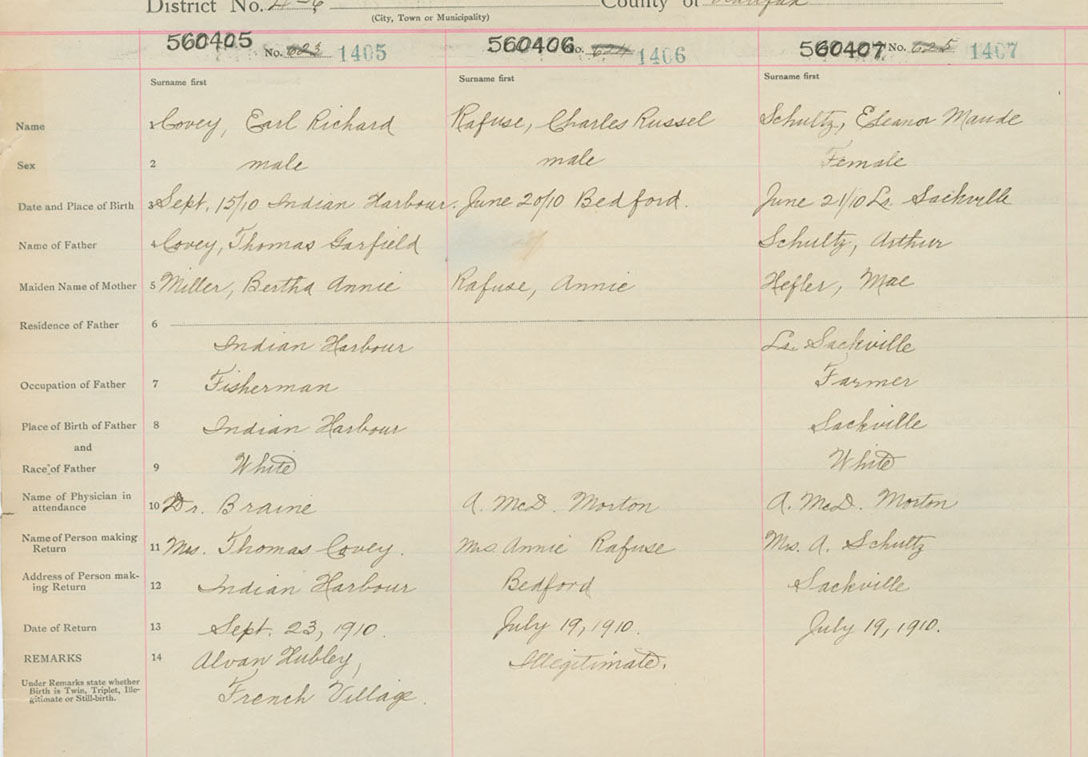 District No. 4-6 County of Halifax
(City, Town or Municipality)
560405 No. 623 1405 560406 No. 624 1406 560407 No. 625 1407
Surname first Surname first Surname first
Name 1 Covey, Earl Richard Rafuse, Charles Russel Schultz, Eleanor Maude
Sex 2 male male Female
Date and Place of Birth 3 Sept. 15/10 Indian Harbour. June 20/10 Bedford. June 21/10 Lr. Sackville
Name of Father 4 Covey, Thomas Garfield Schultz, Arthur
Maiden Name of Mother 5 Miller, Bertha Annie Rafuse, Annie Hefler, Mae
Residence of Father 6
Indian Harbour Lr. Sackville
Occupation of Father 7 Fisherman Farmer
Place of Birth of Father 8 Indian Harbour Sackville
and
Race of Father 9 White White
Name of Physician in
attendance 10 Dr. Braine A. McD. Morton A. McD. Morton
Name of Person making
Return 11 Mrs. Thomas Covey. Mrs Annie Rafuse Mrs. A. Schultz
Address of Person mak-
ing Return 12 Indian Harbour Bedford Sackville
Date of Return 13 Sept. 23, 1910. July 19, 1910. July 19, 1910.
REMARKS 14 Alvan Hubley, Illegitimate.
Under Remarks state whether
Birth is Twin, Triplet, Ille-
gitimate or Still-birth.
French Village.